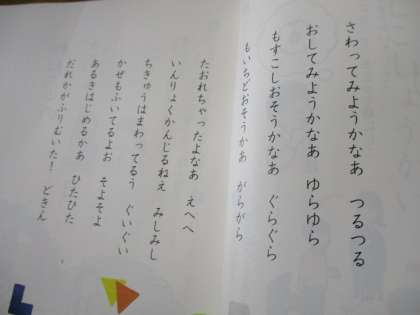 さわってみようかなあ　つるつる
おしてみようかなあ　ゆらゆら
もすこしおそうかなあ　ぐらぐら
もいちどおそうかあ　がらがら
たおれちゃったよなあ　えへへ
いんりょくかんじるねえ　みしみし
ちきゅうはまわってるう　ぐいぐい
かぜもふいてるよお　そよそよ
あるきはじめるかあ　ひたひた
だれかがふりむいた！　どきん